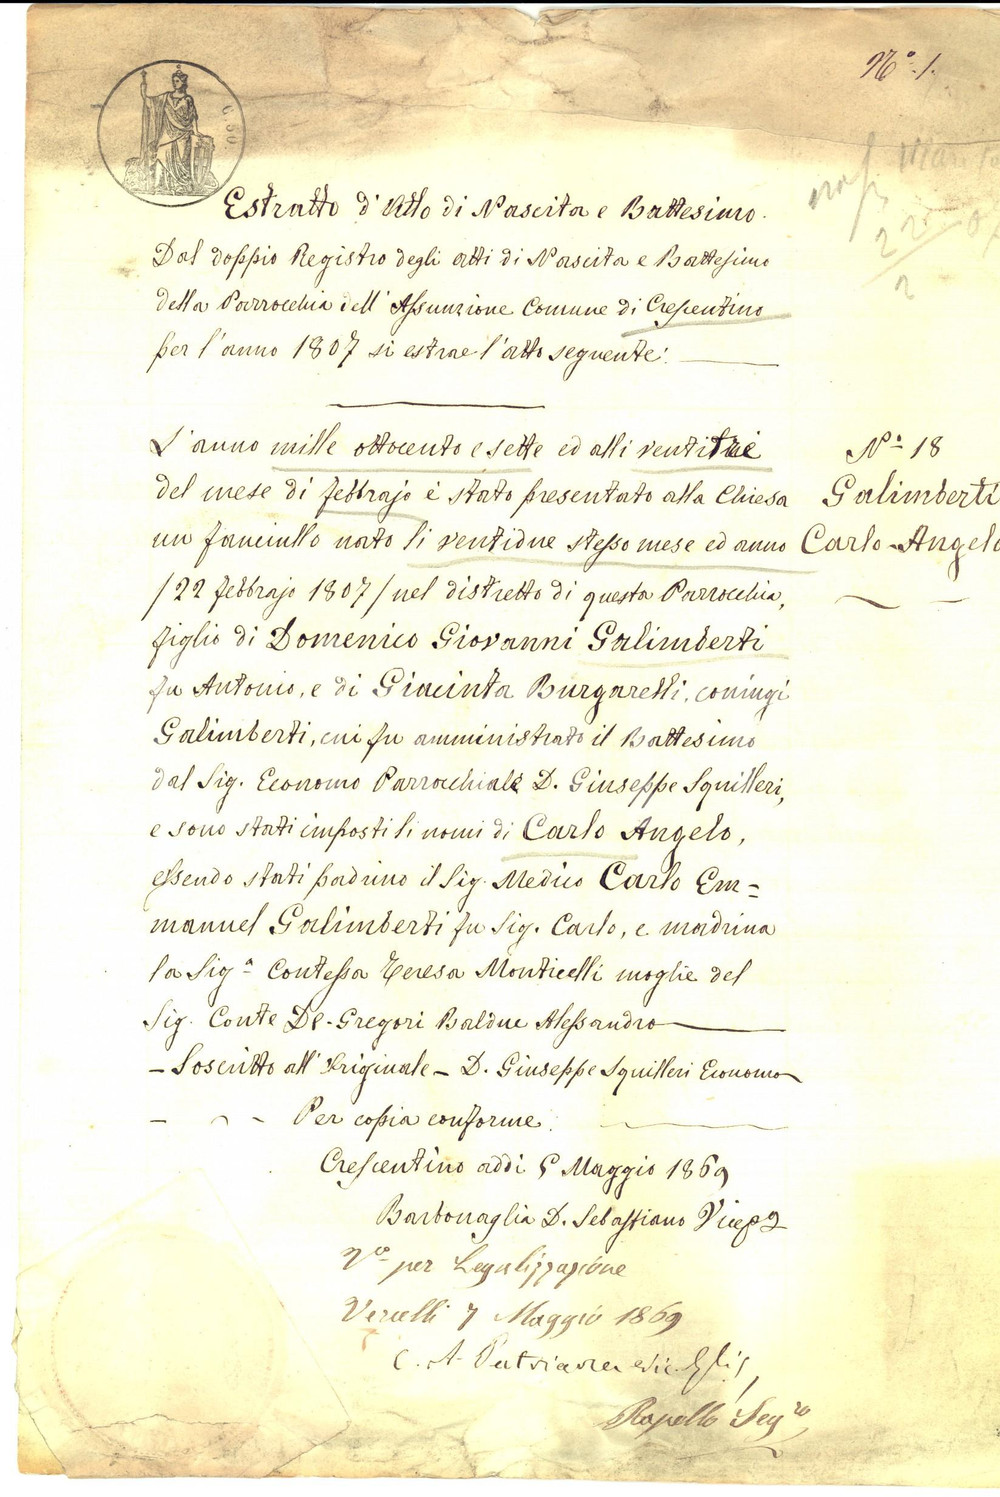 Nº. 1.
C. 50
Estratto d'Atto di Nascita e Battesimo.
Dal doppio Registro degli atti di Nascita e Battesimo
della Parrocchia dell'Assunzione Comune di Crescentino
per l'anno 1807 si estrae l'atto seguente:
L'anno mille ottocento e sette ed alli ventitrè
del mese di febbrajo è stato presentato alla Chiesa
un fanciullo nato li ventidue stesso mese ed anno
/22 febbrajo 1807/ nel distretto di questa Parrocchia,
figlio di Domenico Giovanni Galimberti
fu Antonio, e di Giacinta Burgarelli, coniugi
Galimberti, cui fu amministrato il Battesimo
dal Sig. Economo Parrocchiale D. Giuseppe Squilleri,
e sono stati imposti li nomi di Carlo Angelo,
essendo stati padrino il Sig. Medico Carlo Em=
manuel Galimberti fu Sig. Carlo, e madrina
la Sigª Contessa Teresa Monticelli moglie del
Sig. Conte De-Gregori Balduc Alessandro
- Soscritto all'Originale - D. Giuseppe Squilleri Economo
Per copia conforme.
Crescentino addi 5 Maggio 1869
Barbonaglia D. Sebastiano
Vº per Legalizzazione
Vercelli 7 Maggio 1869
C. A.
Rapello Segrº
Nº 18
Galimberti
Carlo-Angelo